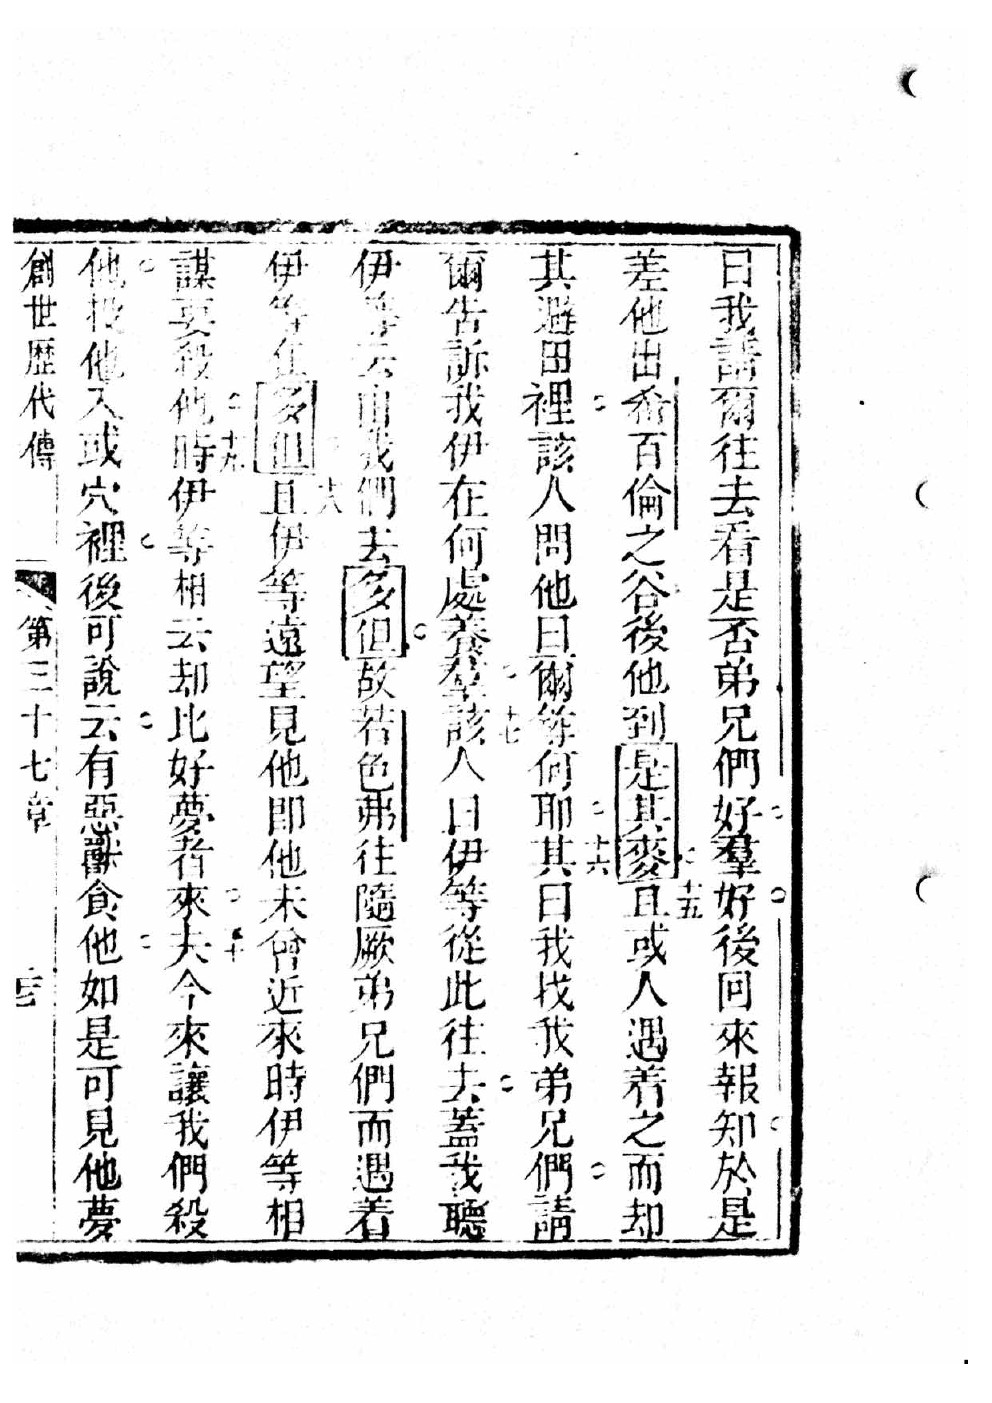 曰我請爾往去看是否弟兄們好羣好後回來報知於是
差他出希百倫之谷後他到是其麥十五且或人遇着之而却
其避田裡該人問他曰爾等何耶十六其曰我找我弟兄們請
爾告訴我伊在何處養羣十七該人曰伊等從此往去蓋我聽
伊等云由我們去多但故若色弗往隨厥弟兄們而遇着
伊等在多但十八且伊等遠望見他即他未曾近來時伊等相
謀要殺他時十九伊等相云却比好夢者來二十夫今來讓我們殺
他投他入或穴裡後可說云有惡獸食他如是可見他夢
創世歷代傳 第三十七章